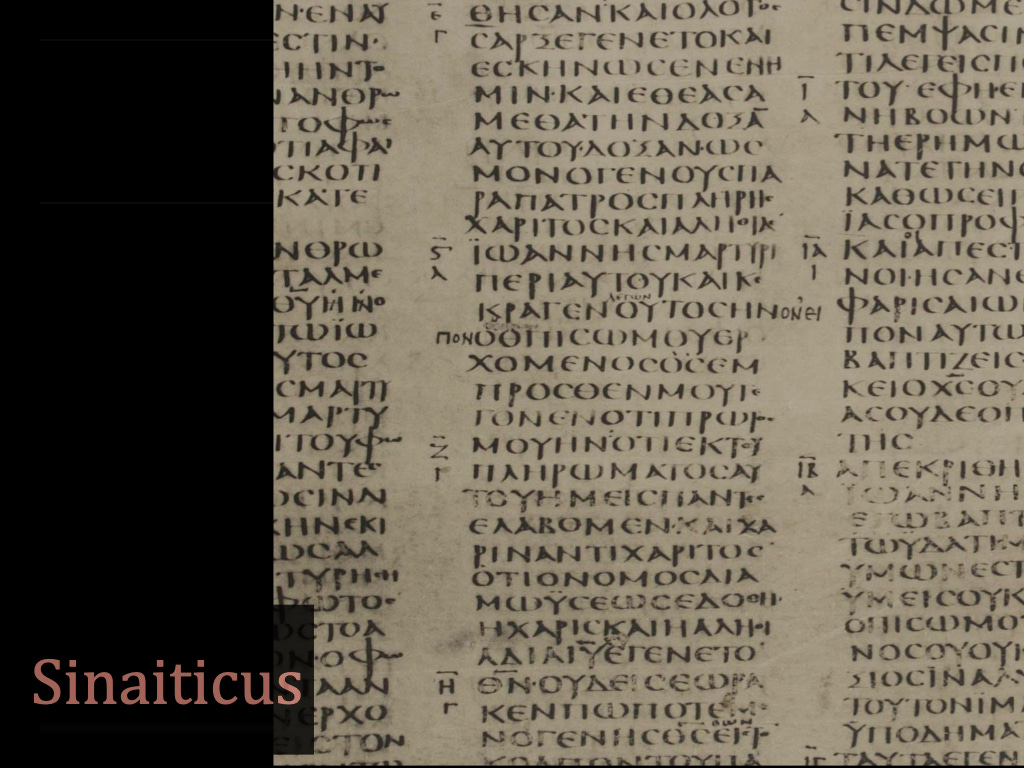 Ν·ΕΝΑΥ
ΕϹΤΙΝ·
ΗΗΝΤΟ
ΑΝΘΡΩ
ΤΟΦΩϹ
ΤΙΑΦΑΙ
ϹΚΟΤΙ
ΚΑΤΕ
ΝΘΡΩ
ΤΑΛΜΕ
ΪΩΪΩ
ΥΤΟϹ
ϹΜΑΡΤΥ
ΜΑΡΤΥ
ΙΤΟΥΦΩ
ΑΝΤΕϹ
ΟϹΕΙΝΑ
ΚΗΝΕΚΙ
ΩϹΑΛ
ΤΥΡΗϹΗ
ΦΩΤΟϹ
ΩϹΤΟΑ
Ν·ΟΦΩ
ΑΑΝ
ΝΕΡΧΟ
ΕΙϹΤΟΝ
ΘΗϹΑΝΚΑΙΟΛΟΓΟϹ
ϹΑΡΞΕΓΕΝΕΤΟΚΑΙ
ΕϹΚΗΝΩϹΕΝΕΝΗ
ΜΙΝ·ΚΑΙΕΘΕΑϹΑ
ΜΕΘΑΤΗΝΔΟΞΑ̅
ΑΥΤΟΥ·ΔΟΞΑΝ·ΩϹ
ΜΟΝΟΓΕΝΟΥϹΠΑ
ΡΑΠΑΤΡΟϹΠΛΗΡΗϹ
ΧΑΡΙΤΟϹΚΑΙΑΛΗΘΙΑϹ
ΪΩΑΝΝΗϹΜΑΡΤΥΡΙ
ΠΕΡΙΑΥΤΟΥΚΑΙΚΕ
ΚΡΑΓΕΝΟΥΤΟϹΗΝΟΝΕΙ
ΠΟΝΟΟΠΙϹΩΜΟΥΕΡ
ΧΟΜΕΝΟϹΟϹΕΜ
ΠΡΟϹΘΕΝΜΟΥΓΕ
ΓΟΝΕΝΟΤΙΠΡΩΤΟϹ
ΜΟΥΗΝΟΤΙΕΚΤΟΥ
ΠΛΗΡΩΜΑΤΟϹΑΥ
ΤΟΥΗΜΕΙϹΠΑΝΤΕϹ
ΕΛΑΒΟΜΕΝ·ΚΑΙΧΑ
ΡΙΝΑΝΤΙΧΑΡΙΤΟϹ
ΟΤΙΟΝΟΜΟϹΔΙΑ
ΜΩΫϹΕΩϹΕΔΟΘΗ
ΗΧΑΡΙϹΚΑΙΗΑΛΗΘΙ
ΑΔΙΑΙ̅Υ̅ΕΓΕΝΕΤΟ
Θ̅Ν̅·ΟΥΔΕΙϹΕΩΡΑ
ΚΕΝΠΩΠΟΤΕ
ΝΟΓΕΝΗϹ
ΠΕΜΨΑϹΙΝ
ΤΙΛΕΓΕΙϹΠ
ΤΟΥ·ΕΦΗΕ
ΝΗΒΟΩΝ
ΤΗΕΡΗΜΩ
ΝΑΤΕΤΗΝΟ
ΚΑΘΩϹΕΙΠ
ΪΑϹΟΠΡΟΦ
ΚΑΙΑΠΕϹΤ
ΝΟΙΗϹΑΝΕ
ΦΑΡΙϹΑΙΩ
ΠΟΝΑΥΤΩ
ΒΑΠΤΙΖΕΙϹ
ΚΕΙΟΧ̅Ϲ̅ΟΥ
ΑϹΟΥΔΕΟΠ
ΤΗϹ
ΑΠΕΚΡΙΘΗ
ΪΩΑΝΝΗ
ΕΓΩΒΑΠΤ
ΤΩΥΔΑΤΙΜ
ΥΜΩΝΕϹΤ
ΥΜΕΙϹΟΥΚ
ΟΠΙϹΩΜΟ
ΝΟϹΟΥΟΥΚ
ΞΙΟϹΙΝΑΛΥ
ΤΟΥΤΟΝΙΜΑ
ΫΠΟΔΗΜΑ
ΤΑΥΤΑΕΓΕΝ
Sinaiticus